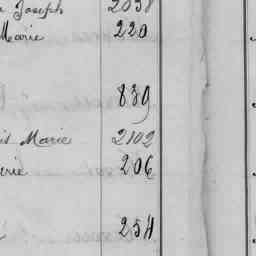 Joseph 2058
Marie 220
839
Marie 2102
206
254